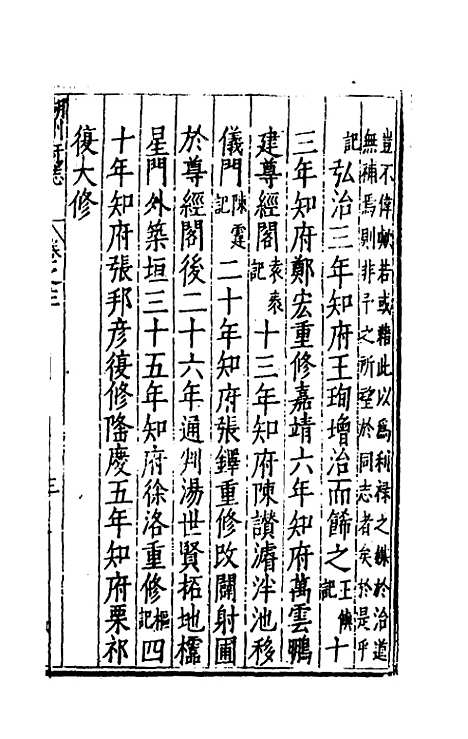 豈不偉歟若或藉此以爲利祿之媒於治道
無補焉則非予之所望於同志者矣於是乎
記弘治三年知府王珣增治而餙之王㒜記十
三年知府鄭宏重修嘉靖六年知府萬雲鵬
建尊經閣袁泰記十三年知府陳讃濬泮池移
儀門陳霆記二十年知府張鐸重修改闢射圃
於尊經閣後二十六年通判湯世賢拓地櫺
星門外築垣三十五年知府徐洛重修記四
十年知府張邦彦復修隆慶五年知府栗祁
復大修
卷之三